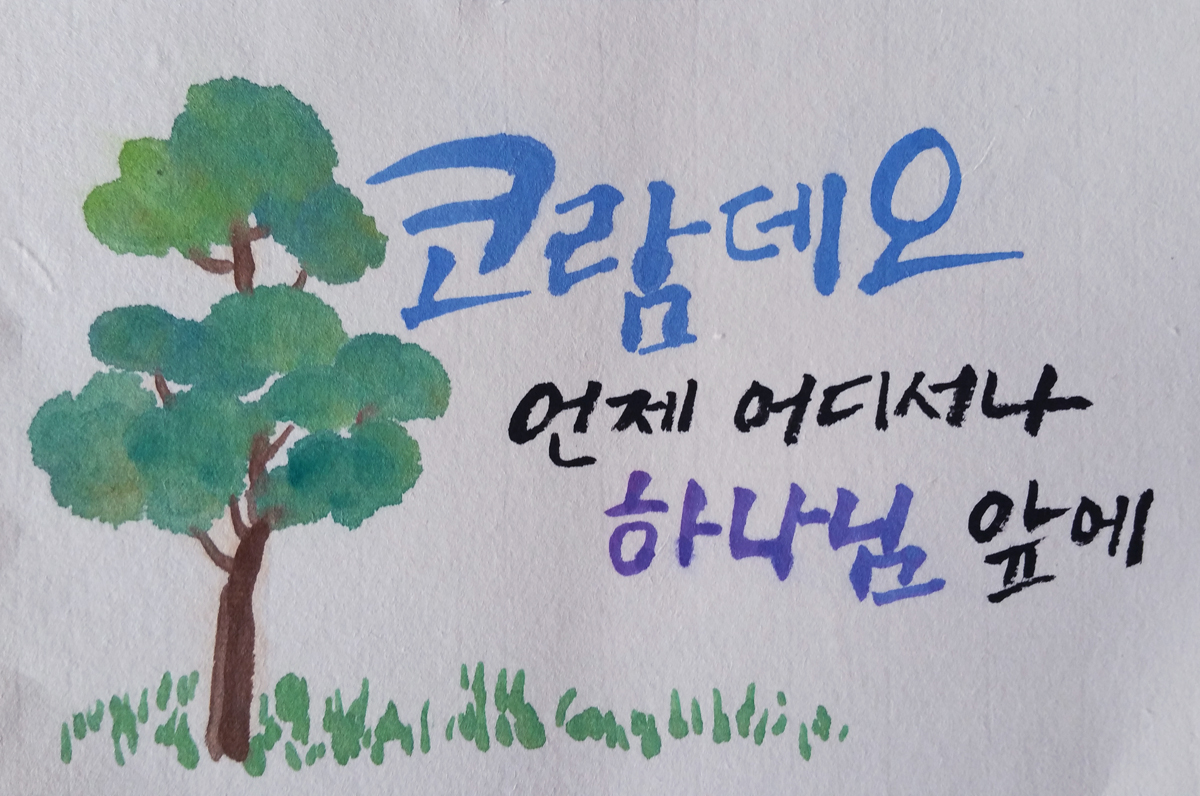 코람데오
언제 어디서나
하나님 앞에